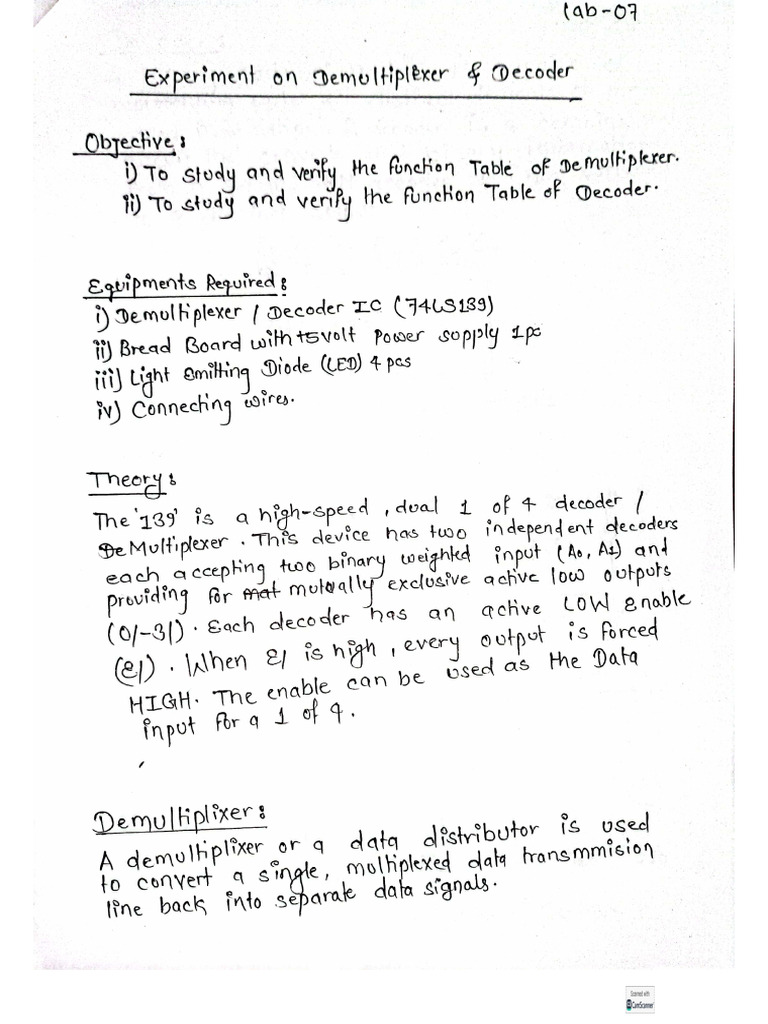 Lab-07
Experiment on Demultiplexer & Decoder
Objective:
i) To study and verify the function Table of Demultiplexer.
ii) To study and verify the function Table of Decoder.
Equipments Required:
i) Demultiplexer / Decoder IC (74LS139)
ii) Bread Board with +5volt Power supply 1pc
iii) Light Emitting Diode (LED) 4 pcs
iv) Connecting wires.
Theory:
The '139' is a high-speed, dual 1 of 4 decoder /
DeMultiplexer. This device has two independent decoders
each accepting two binary weighted input (A0, A1) and
providing for mat mutually exclusive active low outputs
(0/-3/). Each decoder has an active LOW Enable
(E/). When E/ is high, every output is forced
HIGH. The enable can be used as the Data
input for a 1 of 4.
Demultiplixer:
A demultiplixer or a data distributor is used
to convert a single, multiplexed data transmmision
line back into separate data signals.
Scanned with
CamScanner